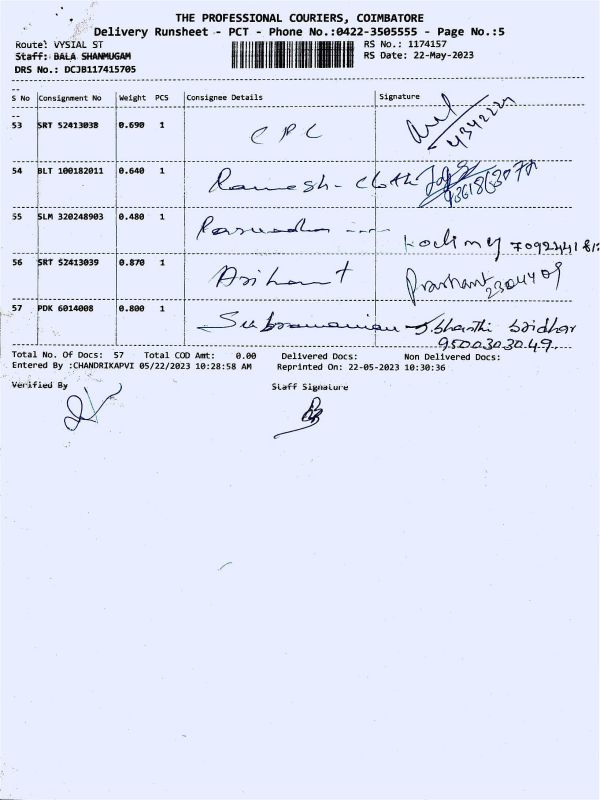 THE PROFESSIONAL COURIERS, COIMBATORE
Delivery Runsheet - PCT - Phone No.:0422-3505555 - Page No.:5
Route: VYSIAL ST RS No.: 1174157
Staff: BALA SHANMUGAM RS Date: 22-May-2023
DRS No.: DCJB117415705
S No Consignment No Weight PCS Consignee Details Signature
53 SRT 52413038 0.690 1 CPC 4342221
54 BLT 100182011 0.640 1 Ramesh - Cloth
55 SLM 320248903 0.480 1
56 SRT 52413039 0.870 1 Arihant Prashant 2304409
57 PDK 6014008 0.800 1 Subramanian S. bhanthi Sridhar
9500303049.
Total No. Of Docs: 57 Total COD Amt: 0.00 Delivered Docs: Non Delivered Docs:
Entered By :CHANDRIKAPVI 05/22/2023 10:28:58 AM Reprinted On: 22-05-2023 10:30:36
Verified By Staff Signature